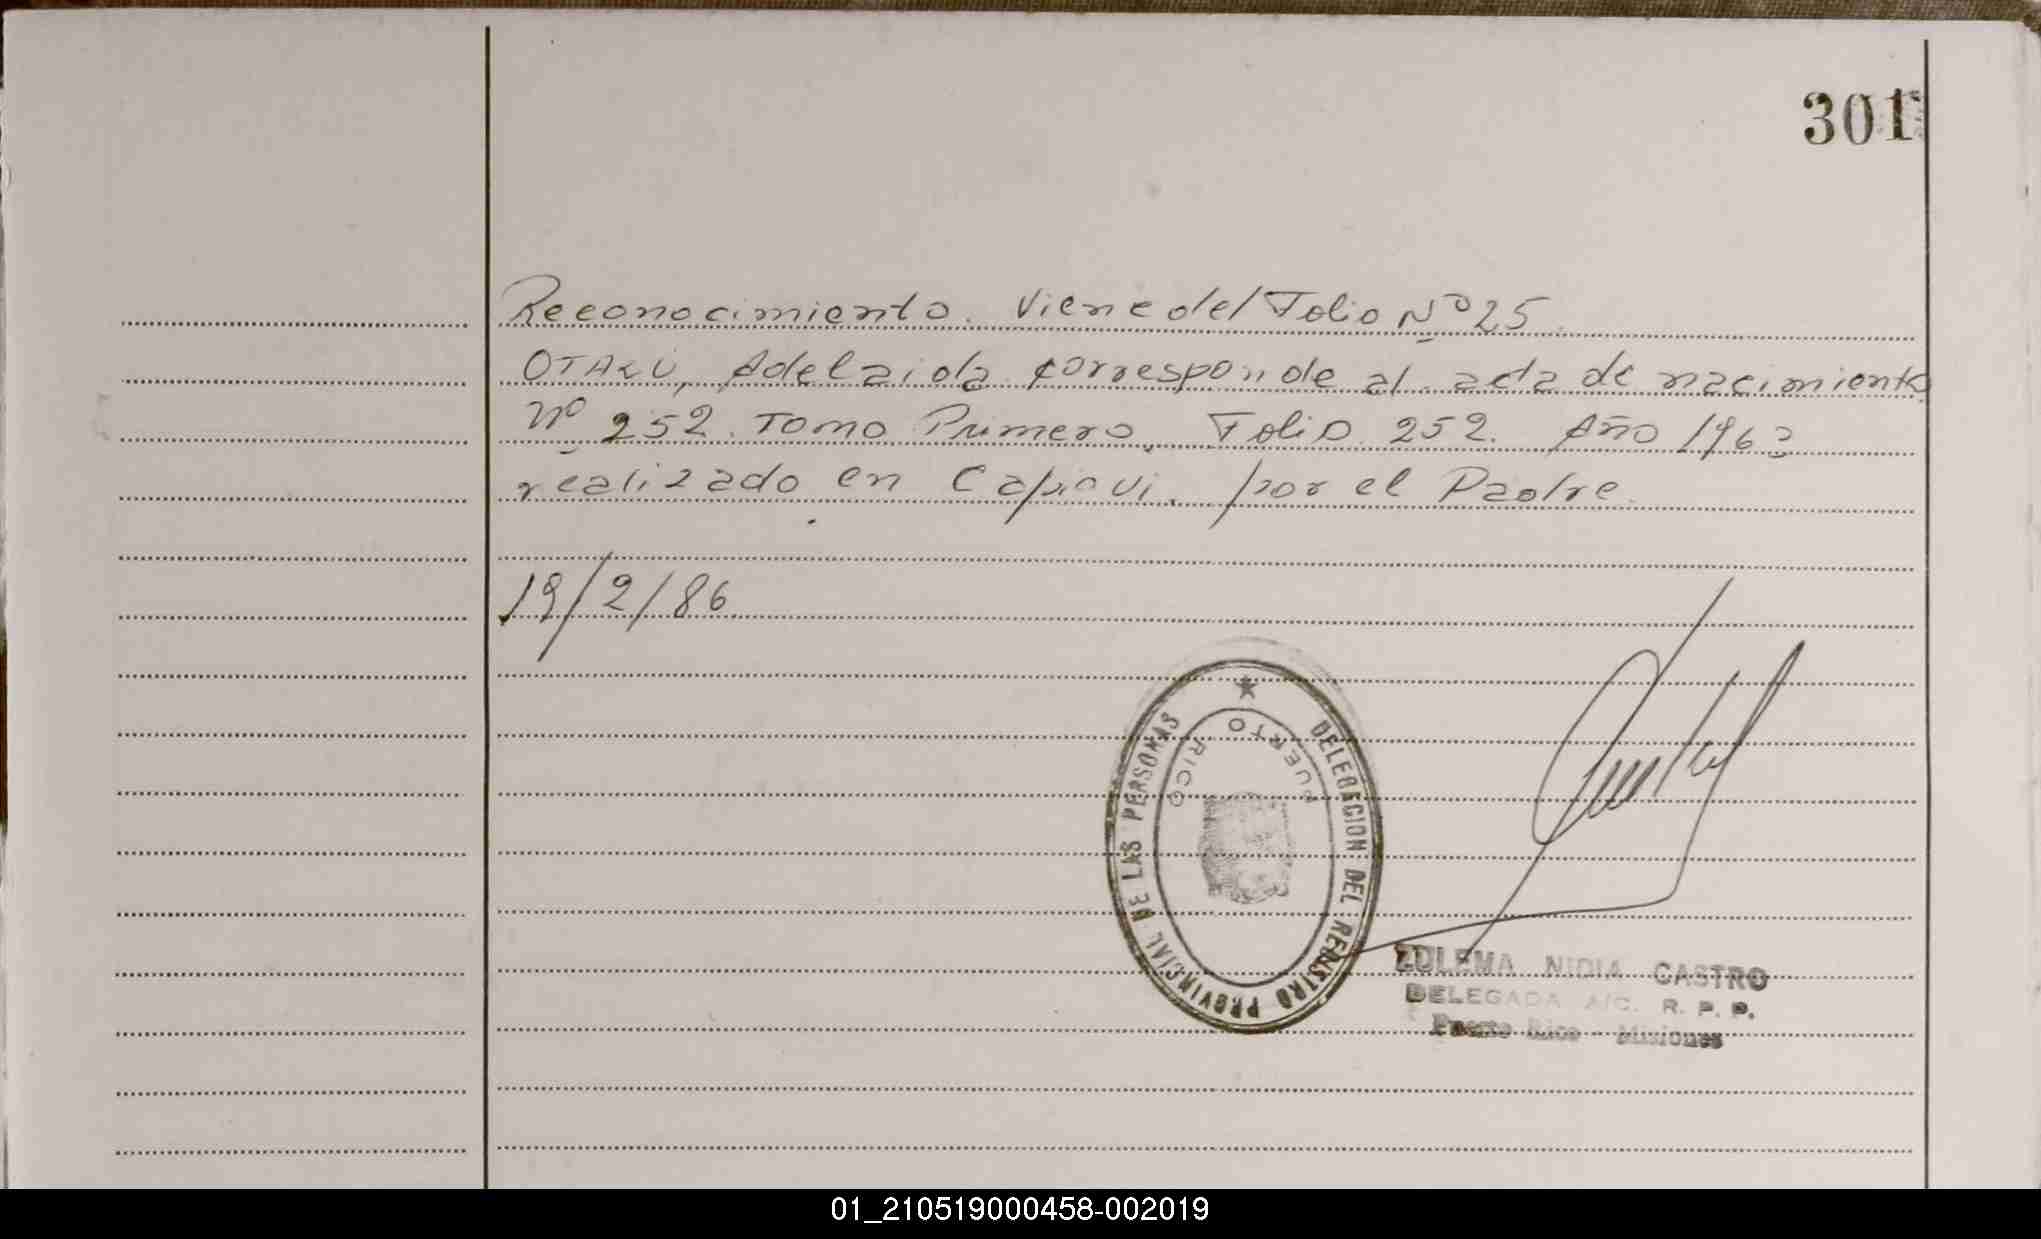 301
Reconocimiento. Viene del Folio Nº 25
OTAKU, Adelaida corresponde al acta de nacimiento
Nº 252. Tomo Primero, Folio 252. Año 1963
realizado en Capiovi. por el Padre.
19/2/86
DELEGACION DEL REGISTRO PROVINCIAL DE LAS PERSONAS
PUERTO RICO
ZULEMA NIDIA CASTRO
DELEGADA A/C. R. P. P.
Puerto Rico - Misiones
01_210519000458-002019